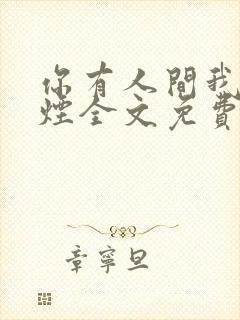 你有人間我
煙全文免費
章寧旦